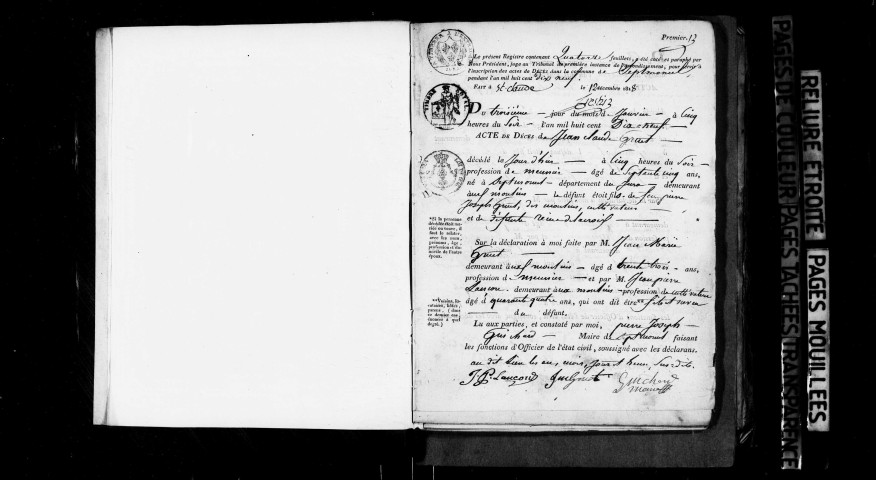 Premier.
Le présent Registre contenant Quatorze feuillets, a été coté et paraphé par
Nous Président, Juge au Tribunal de première instance de l'arrondissement, pour servir à
l'inscription des actes de Décès dans la commune de Septmoncel
pendant l'an mil huit cent Dix neuf.
Fait à St Claude le Décembre 1818
Du troisième jour du mois de Janvier à Cinq
heures du Soir l'an mil huit cent Dix neuf
ACTE de Décès de Jean Claude
décédé le Jour d'hier à Cinq heures du Soir
profession de meunier âgé de Septante cinq ans,
né à Septmoncel département du Jura demeurant
aux moulins le défunt étoit fils de feu pierre
Joseph des moulins, cultivateur
et de défunte
*Si la personne
décédée était mariée
ou veuve, il
faut le relater,
avec les nom,
prénoms, âge,
profession et domicile
de l'autre
époux.
Sur la déclaration à moi faite par M. Jean Marie
demeurant aux moulins âgé de trente trois ans,
profession de meunier et par M. Jean pierre
Lançon demeurant aux moulins profession de cultivateur
âgé de quarante quatre ans, qui ont dit être** fils et
du défunt.
**Voisins,
parens, (dans
ce dernier cas,
énoncer à quel
degré.)
Lu aux parties, et constaté par moi, pierre Joseph
Maire de Septmoncel faisant
les fonctions d'Officier de l'état civil, soussigné avec les déclarans.
au dit lieu les an, mois, jour et heure, Sus dits.
J P Lançon
PAGES DE COULEUR PAGES TACHEES TRANSPARENCE
RELIURE ETROITE PAGES MOUILLEES